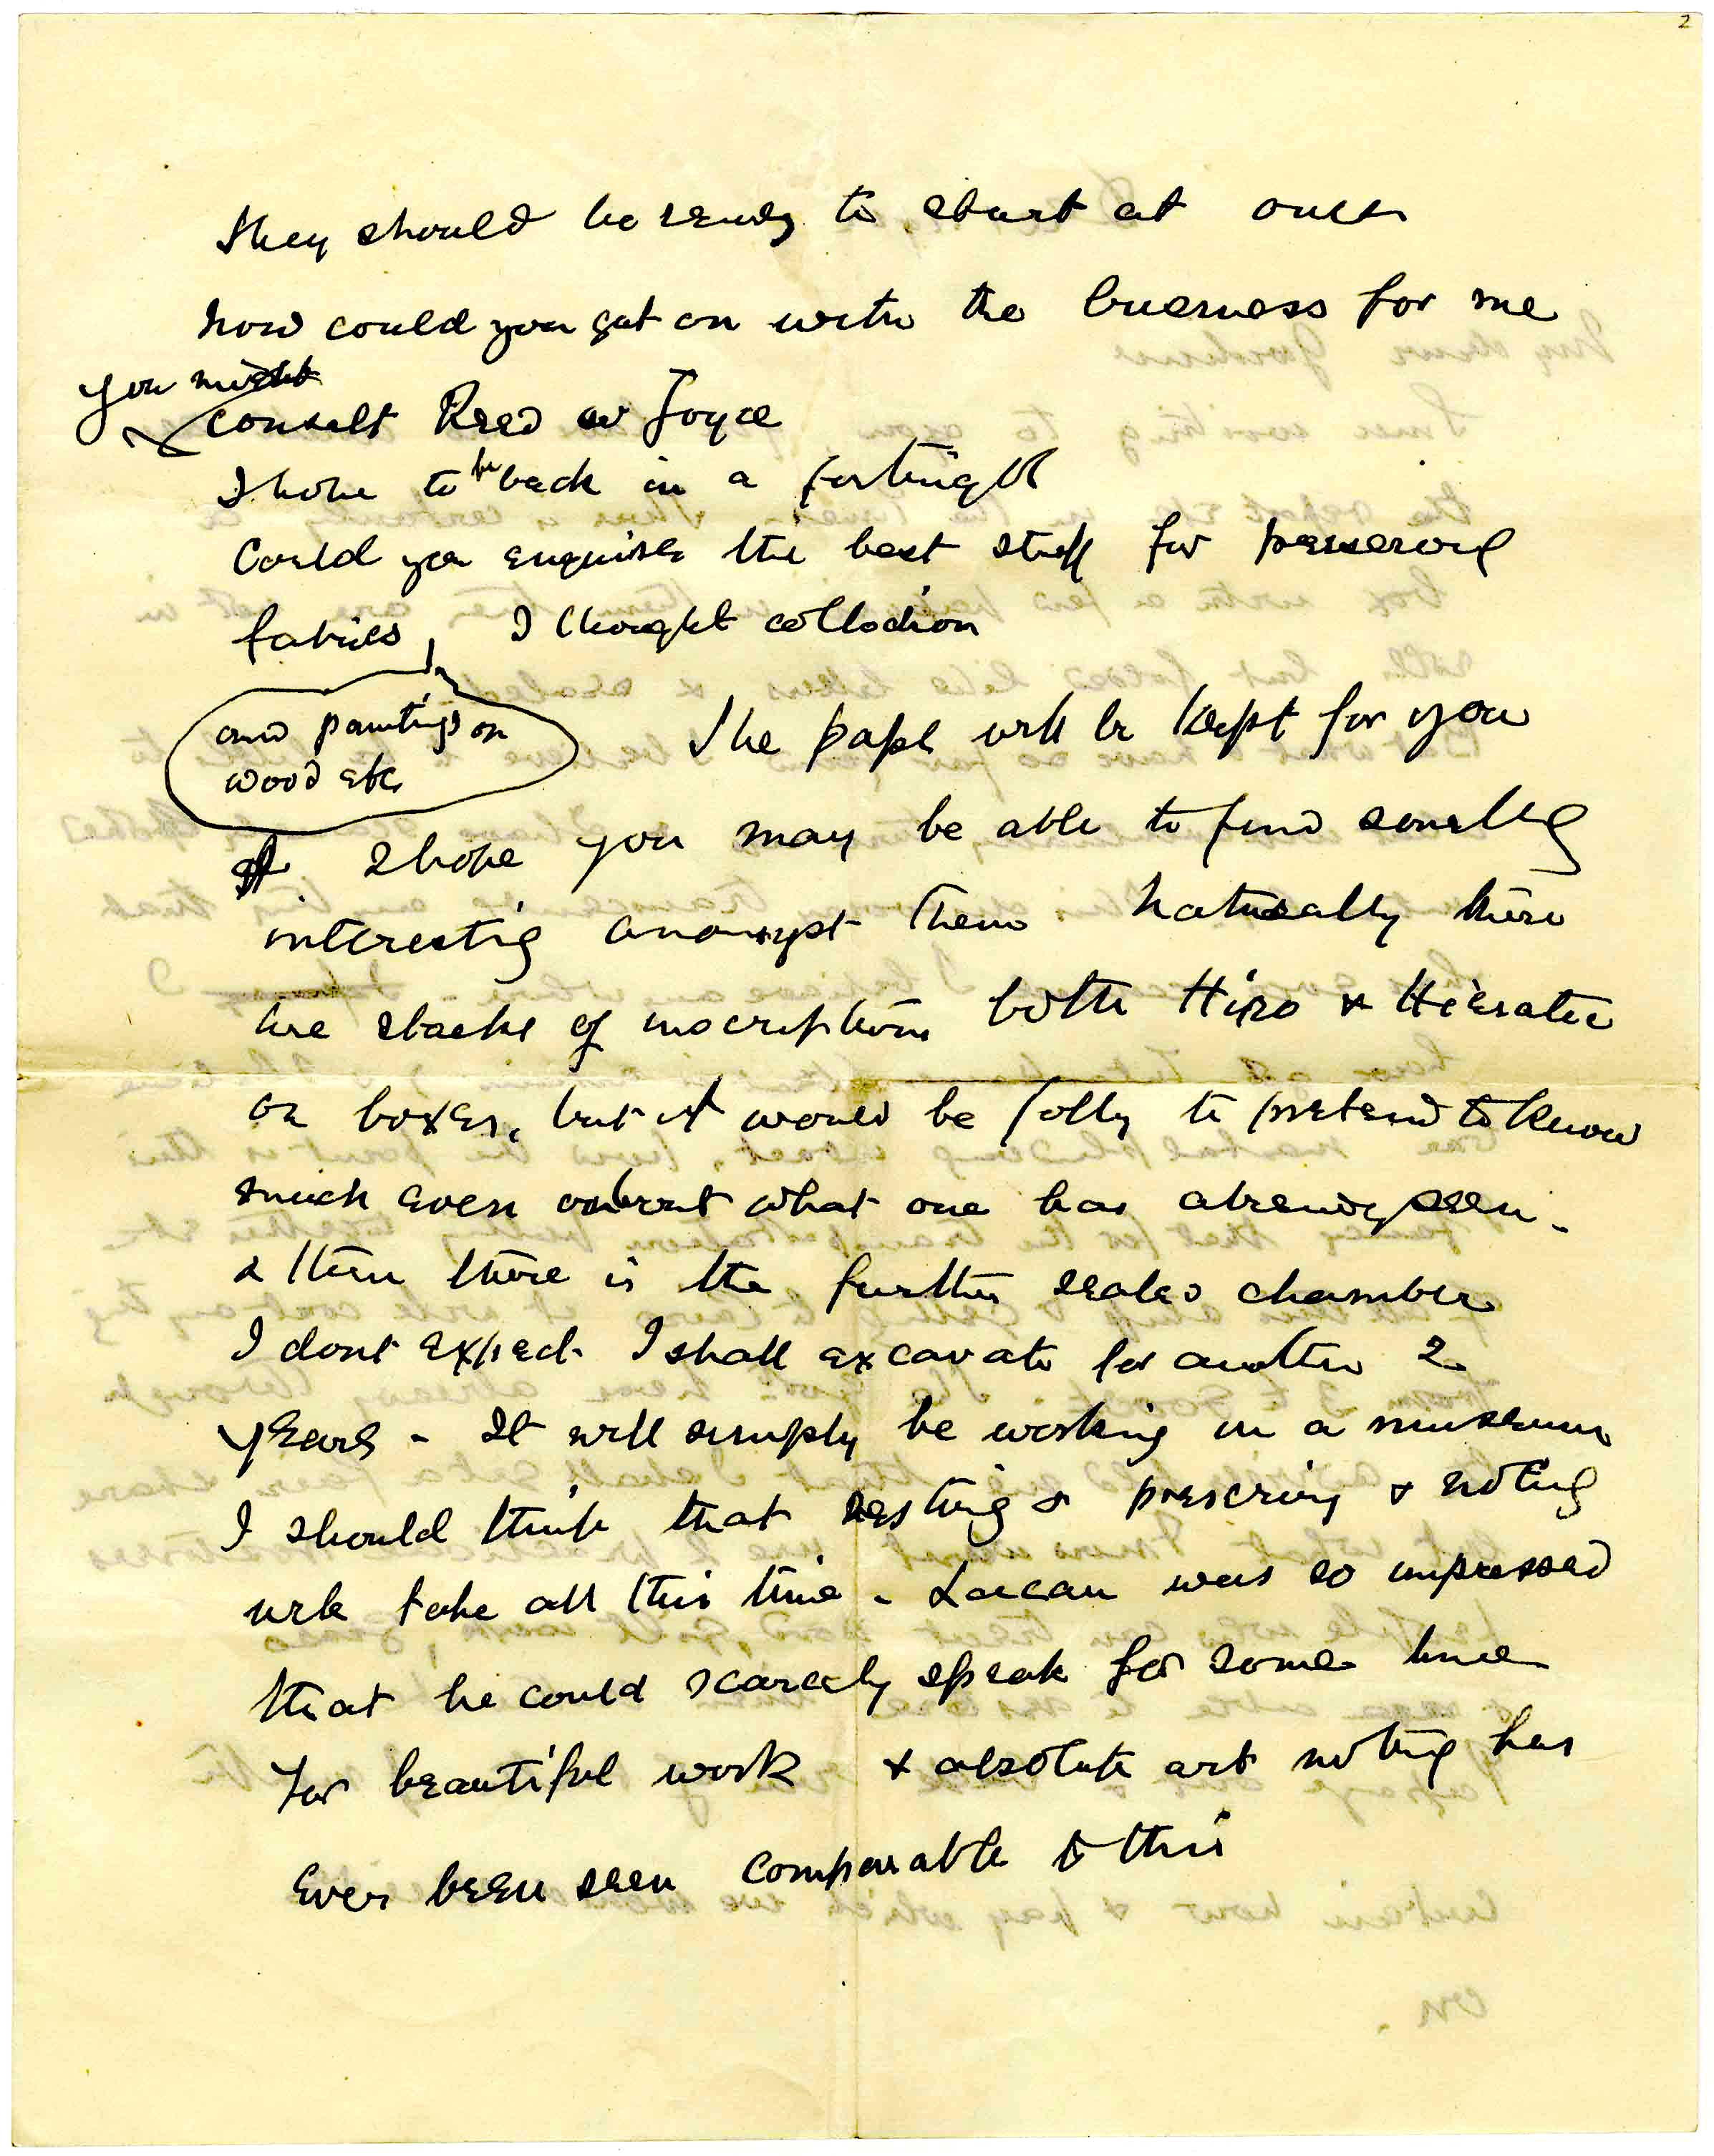 2
they should be ready to start at once
now could you get on with the business for me
you might
consult Read or Joyce
I hope to be back in a fortnight
Could you enquire the best stuff for preserving
fabrics, I thought collodion
and paintings on
wood etc
The papi will be kept for you
I hope you may be able to find something
interesting amongst them Naturally there
are stacks of inscriptions both Hiro & Hieratic
on boxes, but it would be folly to pretend to know
much even about what one has already seen -
& then there is the further sealed chamber
I dont expect I shall excavate for another 2
years - It will simply be working in a museum
I should think that & preserving & noting
will take all this time - Lacau was so impressed
that he could scarcely speak for some time
For beautiful work & absolute art nothing has
ever been seen comparable to this